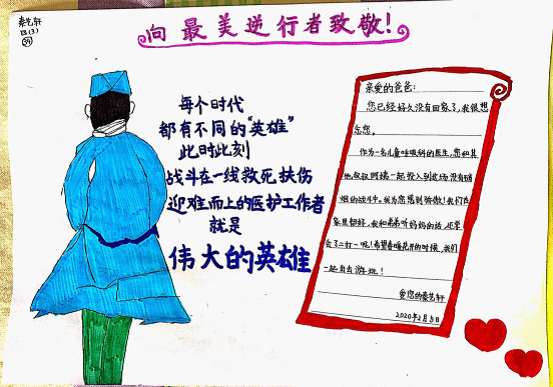 秦艺轩
四(3)
39
向最美逆行者致敬!
每个时代
都有不同的“英雄”
此时此刻
战斗在一线救死扶伤
迎难而上的医护工作者
就是
伟大的英雄
亲爱的爸爸:
您已经好久没有回家了,我很想
念您。
作为一名儿童呼吸科的医生,您和其
他叔叔阿姨一起投入到这场没有硝
烟的战斗中。我为您感到骄傲!我们在
家里都好,我和弟弟听妈妈的话,还学
会了二打一呢!希望春暖花开的时候,我们
一起自由游玩!
爱您的秦艺轩
2020年2月5日